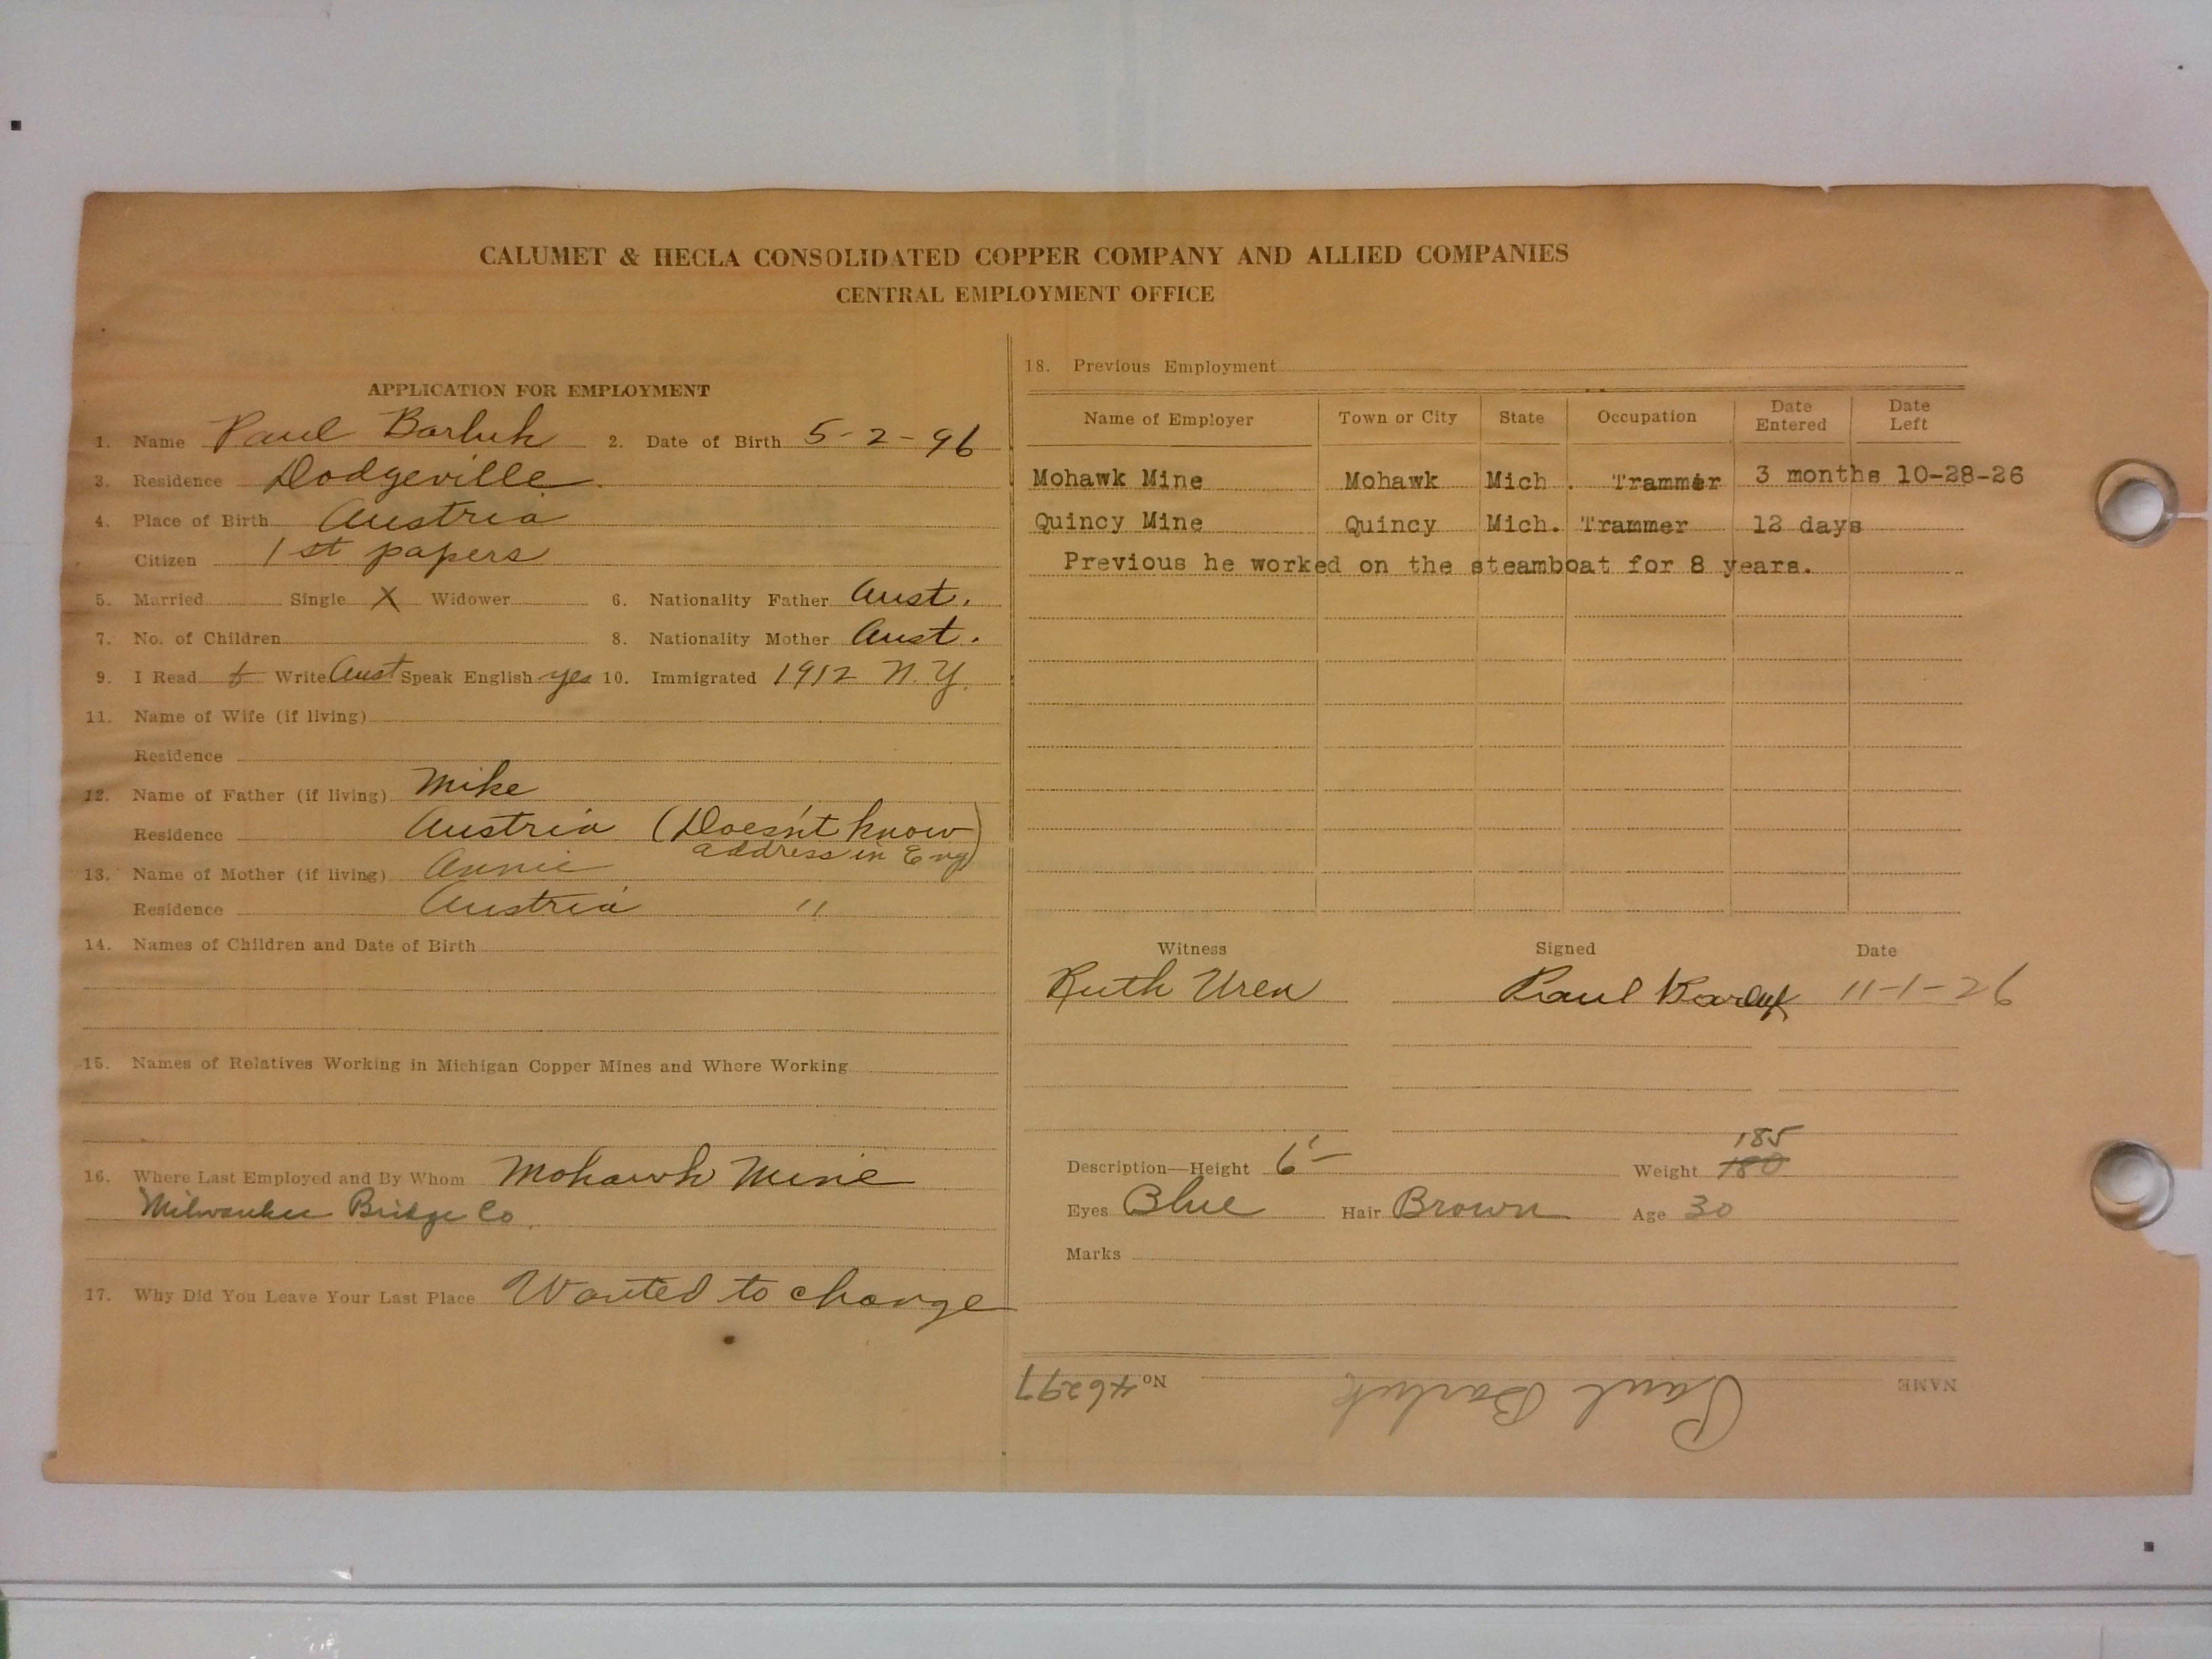 CALUMET & HECLA CONSOLIDATED COPPER COMPANY AND ALLIED COMPANIES
CENTRAL EMPLOYMENT OFFICE
APPLICATION FOR EMPLOYMENT
1. Name Paul Barluk 2. Date of Birth 5-2-96
3. Residence Dodgeville.
4. Place of Birth Austria
Citizen 1st papers
5. Married Single X Widower 6. Nationality Father Aust.
7. No. of Children 8. Nationality Mother Aust.
9. I Read & Write Aust Speak English yes 10. Immigrated 1912 N.Y.
11. Name of Wife (if living)
Residence
12. Name of Father (if living) Mike
Residence Austria (Doesn't know
address in Eng)
13. Name of Mother (if living) Annie
Residence Austria "
14. Names of Children and Date of Birth
15. Names of Relatives Working in Michigan Copper Mines and Where Working
16. Where Last Employed and By Whom Mohawk Mine
Milwaukee Bridge Co.
17. Why Did You Leave Your Last Place Wanted to change
18. Previous Employment
Name of Employer Town or City State Occupation Date Entered Date Left
Mohawk Mine Mohawk Mich. Trammer 3 months 10-28-26
Quincy Mine Quincy Mich. Trammer 12 days
Previous he worked on the steamboat for 8 years.
Witness Signed Date
Ruth Uren Paul 11-1-26
185
Description—Height 6'- Weight 180
Eyes Blue Hair Brown Age 30
Marks
NAME Paul Barluk No 46297